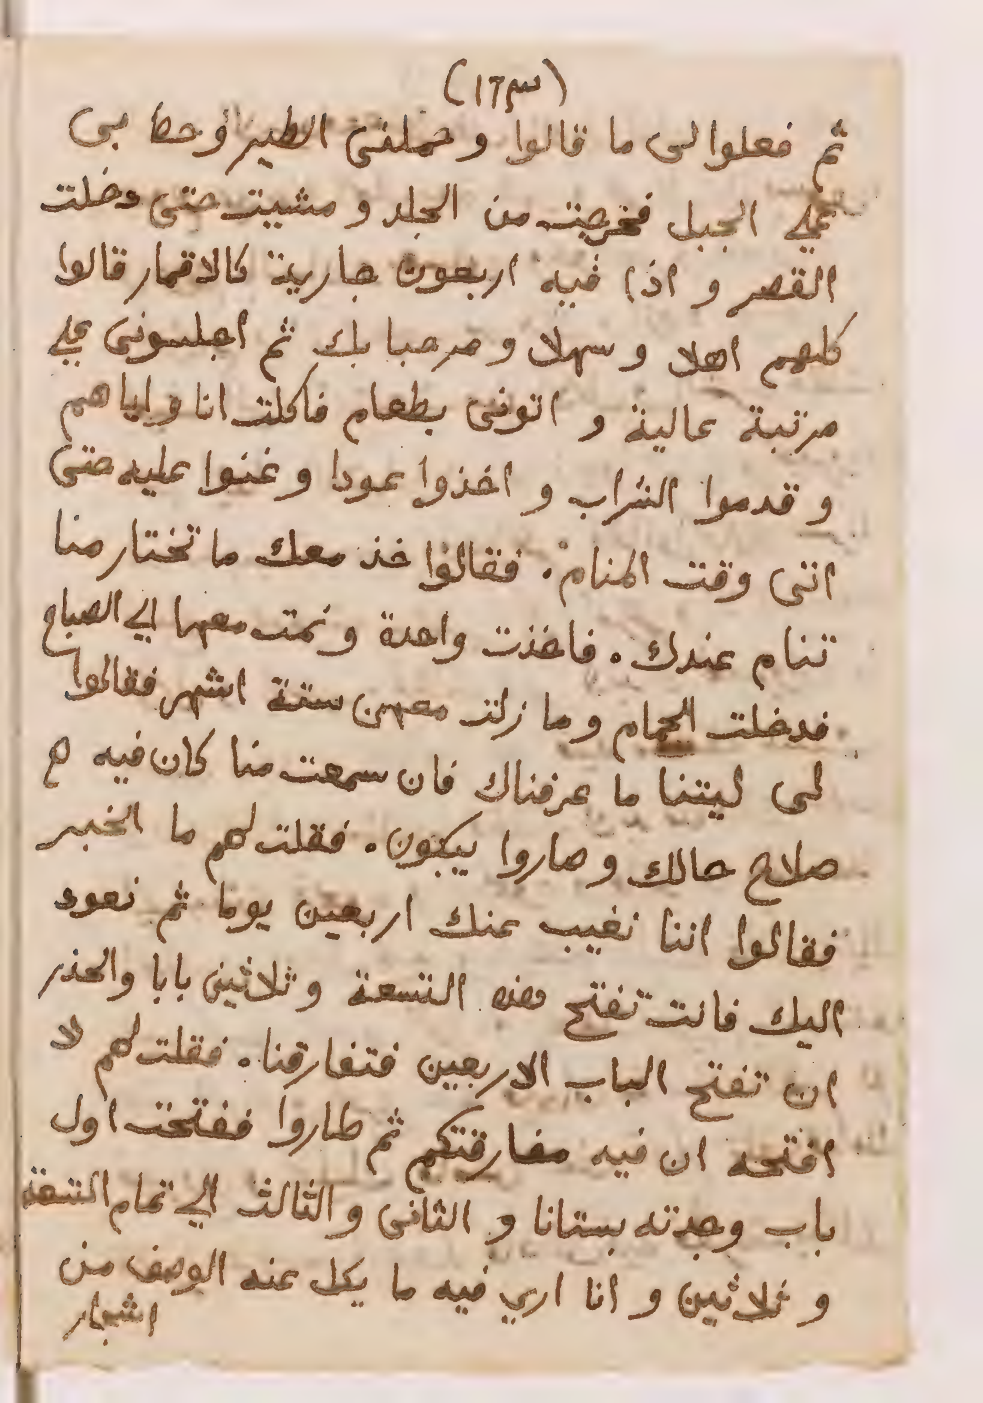 ثم فعلوا لى ما قالوا و حملنى الطير و حط بى
على الجبل فخرجت من الجلد و مشيت حتى دخلت
القصر و اذا فيه اربعون جارية كالاقمار قالوا
كلهم اهلا و سهلا و مرحبا بك ثم اجلسونى على
مرتبة عالية و اتونى بطعام فاكلت انا و اياهم
و قدموا الشراب و اخذوا عودا و غنوا عليه حتى
اتى وقت المنام. فقالوا خذ معك ما تختار منا
تنام عندك. فاخذت واحدة و نمت معها الي الصباح
فدخلت الحمام و ما زلت معهن ستة اشهر فقالوا
لى ليتنا ما عرفناك فان سمعت منا كان فيه
صلاح حالك و صاروا يبكون. فقلت لهم ما الخبر
فقالوا اننا نغيب عنك اربعين يوما ثم نعود
اليك فانت تفتح هذه التسعة و ثلاثين بابا والحذر
ان تفتح الباب الاربعين فتفارقنا. فقلت لهم لا
افتحه ان فيه مفارقتكم ثم طاروا ففتحت اول
باب وجدته بستانا و الثانى و الثالث الي تمام التسعة
و ثلاثين و انا اري فيه ما يكل عنه الوصف من
اشجار